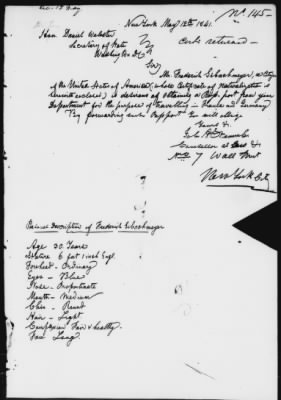 No. 145-
New York May 12th 1841.
Hon Daniel Webster
Secretary of State
Washington D.C.
Certs returned -
Sir,
Mr. Frederick Schuchmeyer, a Citizen
of the United States of America, whose Certificate of Naturalization is
herewith enclosed, is desirous of obtaining a Passport from your
Department for the purpose of travelling in France and Germany
By forwarding such Passport you will oblige
Yours &c
Counsellor at Law &c
No 7 Wall Street
New York City
Personal Description of Frederick Schuchmeyer
Age 30 Years
Stature 6 feet 1 inch Engl.
Forehead - Ordinary
Eyes - Blue
Nose - Proportionate
Mouth - Medium
Chin - Round
Hair - Light
Complexion Fair & healthy.
Face Long.